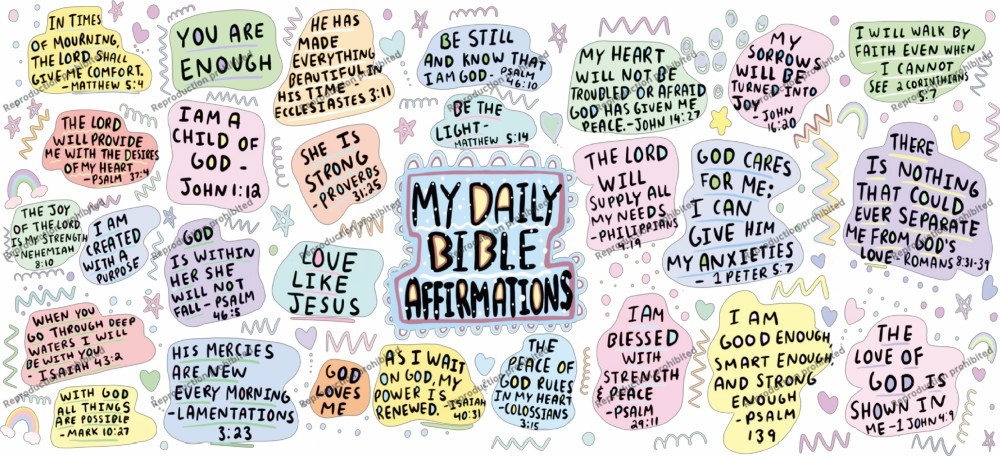 IN TIMES
OF MOURNING,
THE LORD SHALL
GIVE ME COMFORT.
-MATTHEW 5:4
YOU ARE
ENOUGH
HE HAS
MADE
EVERYTHING
BEAUTIFUL IN
HIS TIME -
ECCLESIASTES 3:11
BE STILL
AND KNOW THAT
I AM GOD - PSALM
46:10
BE THE
LIGHT-
MATTHEW 5:14
MY HEART
WILL NOT BE
TROUBLED OR AFRAID
GOD HAS GIVEN ME
PEACE.-JOHN 14:27
MY
SORROWS
WILL BE
TURNED INTO
JOY -JOHN
16:20
I WILL WALK BY
FAITH EVEN WHEN
I CANNOT
SEE 2 CORINTHIANS
5:7
THE LORD
WILL PROVIDE
ME WITH THE DESIRES
OF MY HEART
-PSALM 37:4
I AM A
CHILD OF
GOD -
JOHN 1:12
SHE IS
STRONG
-PROVERBS
31:25
MY DAILY
BIBLE
AFFIRMATIONS
THE LORD
WILL
SUPPLY ALL
MY NEEDS
-PHILIPPIANS
4:19
GOD CARES
FOR ME;
I CAN
GIVE HIM
MY ANXIETIES
- 1 PETER 5:7
THERE
IS NOTHING
THAT COULD
EVER SEPARATE
ME FROM GOD'S
LOVE- ROMANS 8:31-39
THE JOY
OF THE LORD
IS MY STRENGTH
NEHEMIAH
8:10
I AM
CREATED
WITH A
PURPOSE
GOD
IS WITHIN
HER SHE
WILL NOT
FALL - PSALM
46:5
LOVE
LIKE
JESUS
WHEN YOU
GO THROUGH DEEP
WATERS I WILL
BE WITH YOU
- ISAIAH 43:2
HIS MERCIES
ARE NEW
EVERY MORNING
-LAMENTATIONS
3:23
GOD
LOVES
ME
AS I WAIT
ON GOD, MY
POWER IS
RENEWED. -ISAIAH
40:31
THE
PEACE OF
GOD RULES
IN MY HEART
-COLOSSIANS
3:15
I AM
BLESSED
WITH
STRENGTH
& PEACE
-PSALM
29:11
I AM
GOOD ENOUGH,
SMART ENOUGH,
AND STRONG
ENOUGH
-PSALM
139
THE
LOVE OF
GOD IS
SHOWN IN
ME -1 JOHN 4:9
WITH GOD
ALL THINGS
ARE POSSIBLE
-MARK 10:27
Reproduction prohibited